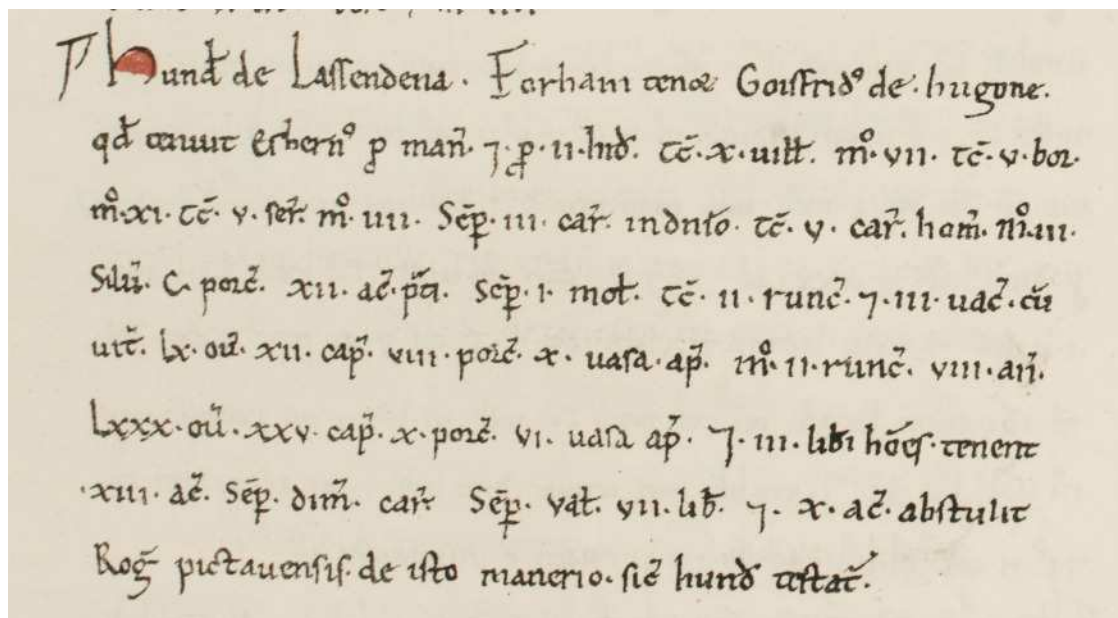 Hund̄ de Lassendena. Forham tenet Goisfrid᷒ de. hugone.
qđ tenuit Esbern᷒ ꝓ man̄. ⁊. ꝓ. II. hid̄. Tc̄. X. uilt̄. m̊. VII. Tc̄. V. bor.
m̊. XI. Tc̄. V. ser̄. m̊. IIII. Sēp. III. car̄. in dn̄io. Tc̄. V. car̄. hom̄. m̊. III.
Silu̅. C. porc̄. XII. ac̄. p̄ti. Sēp. I. mol̄. Tc̄. II. runc̄. ⁊. III. uac̄. cū
uit̄. LX. ou̅. XII. cap̄. VIII. porc̄. X. uasa. ap̄. m̊. II. runc̄. VIII. an̄.
LXXX. ou̅. XXV. cap̄. X. porc̄. VI. uasa ap̄. ⁊. III. lib̄i hōes. tenent
.XIII. ac̄. Sēp. dim̄. car̄ Sēp. Val̄. VII. lib̄. ⁊. X. ac̄. abstulit
Rog̅ pictauensis. de isto manerio. sic̄ hund̄ testat̄.